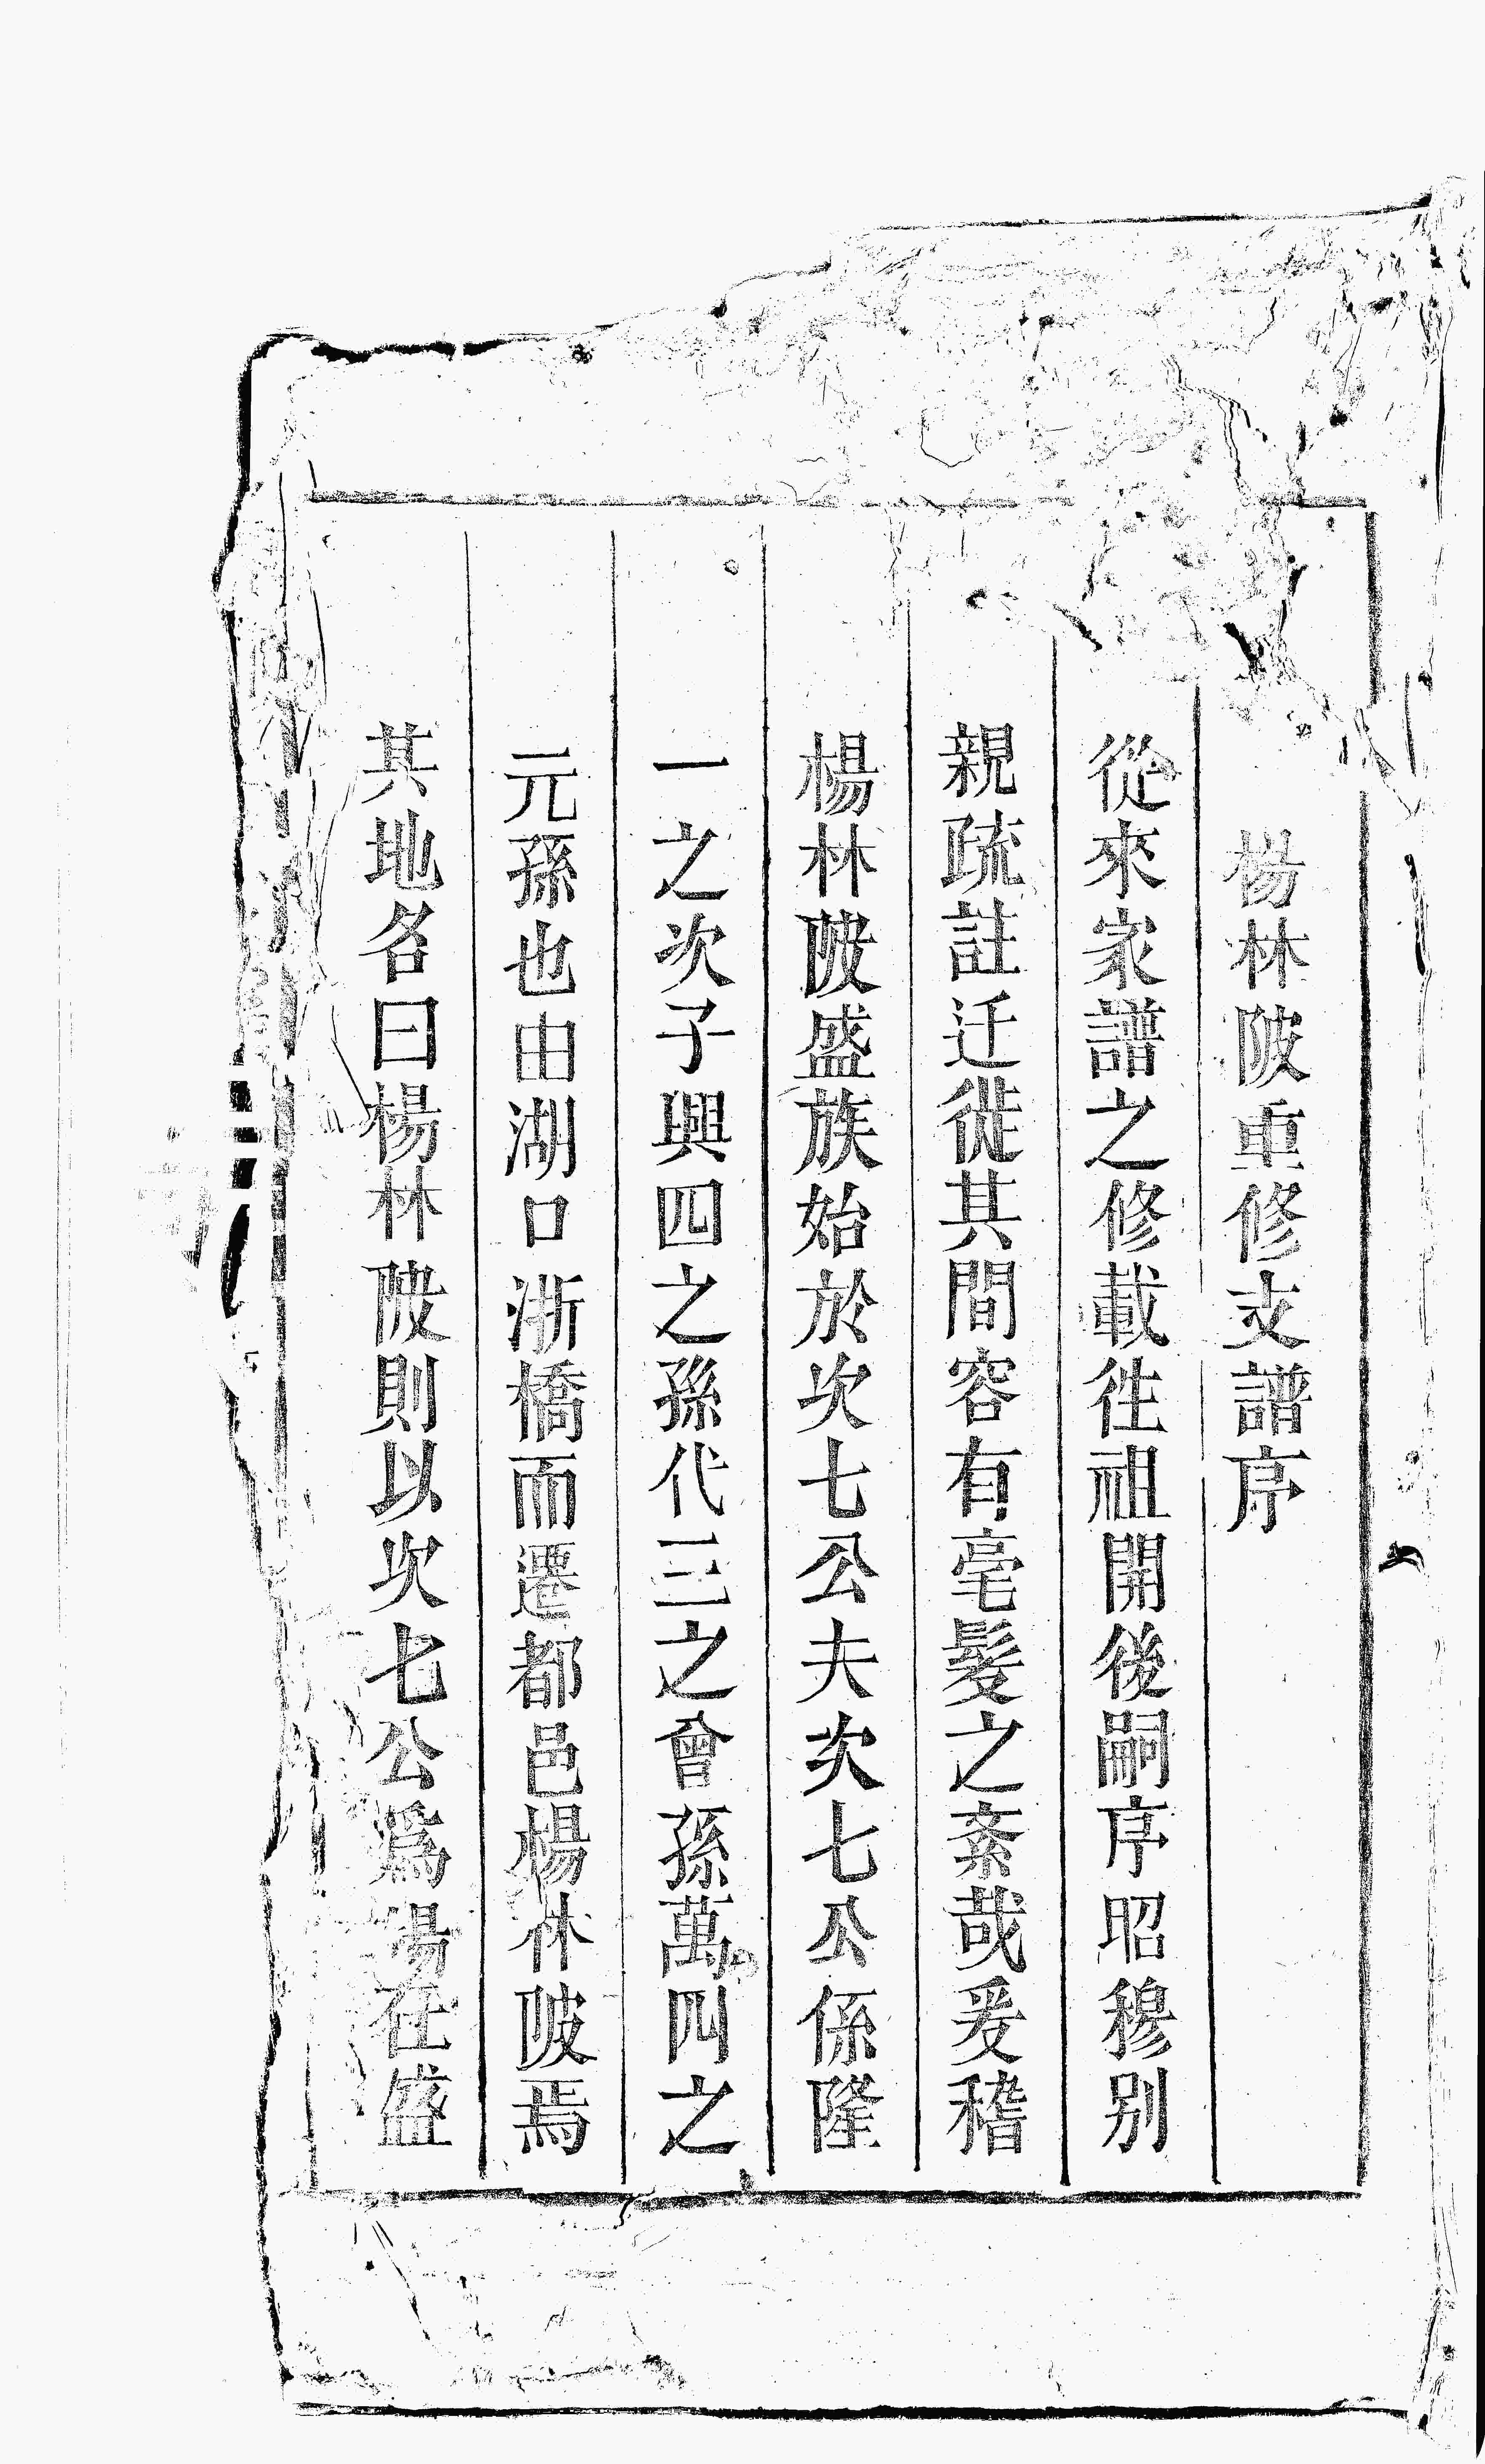 楊林陂重修支譜序
從來家譜之修載徃祖開後嗣序昭穆别
親疏註迁徙其間容有毫髮之紊哉爰稽
楊林陂盛族始於次七公夫次七公係隆
一之次子興四之孫代三之曾孫萬四之
元孫也由湖口浙橋而遷都邑楊林陂焉
其地名曰楊林陂則以次七公爲楊在盛